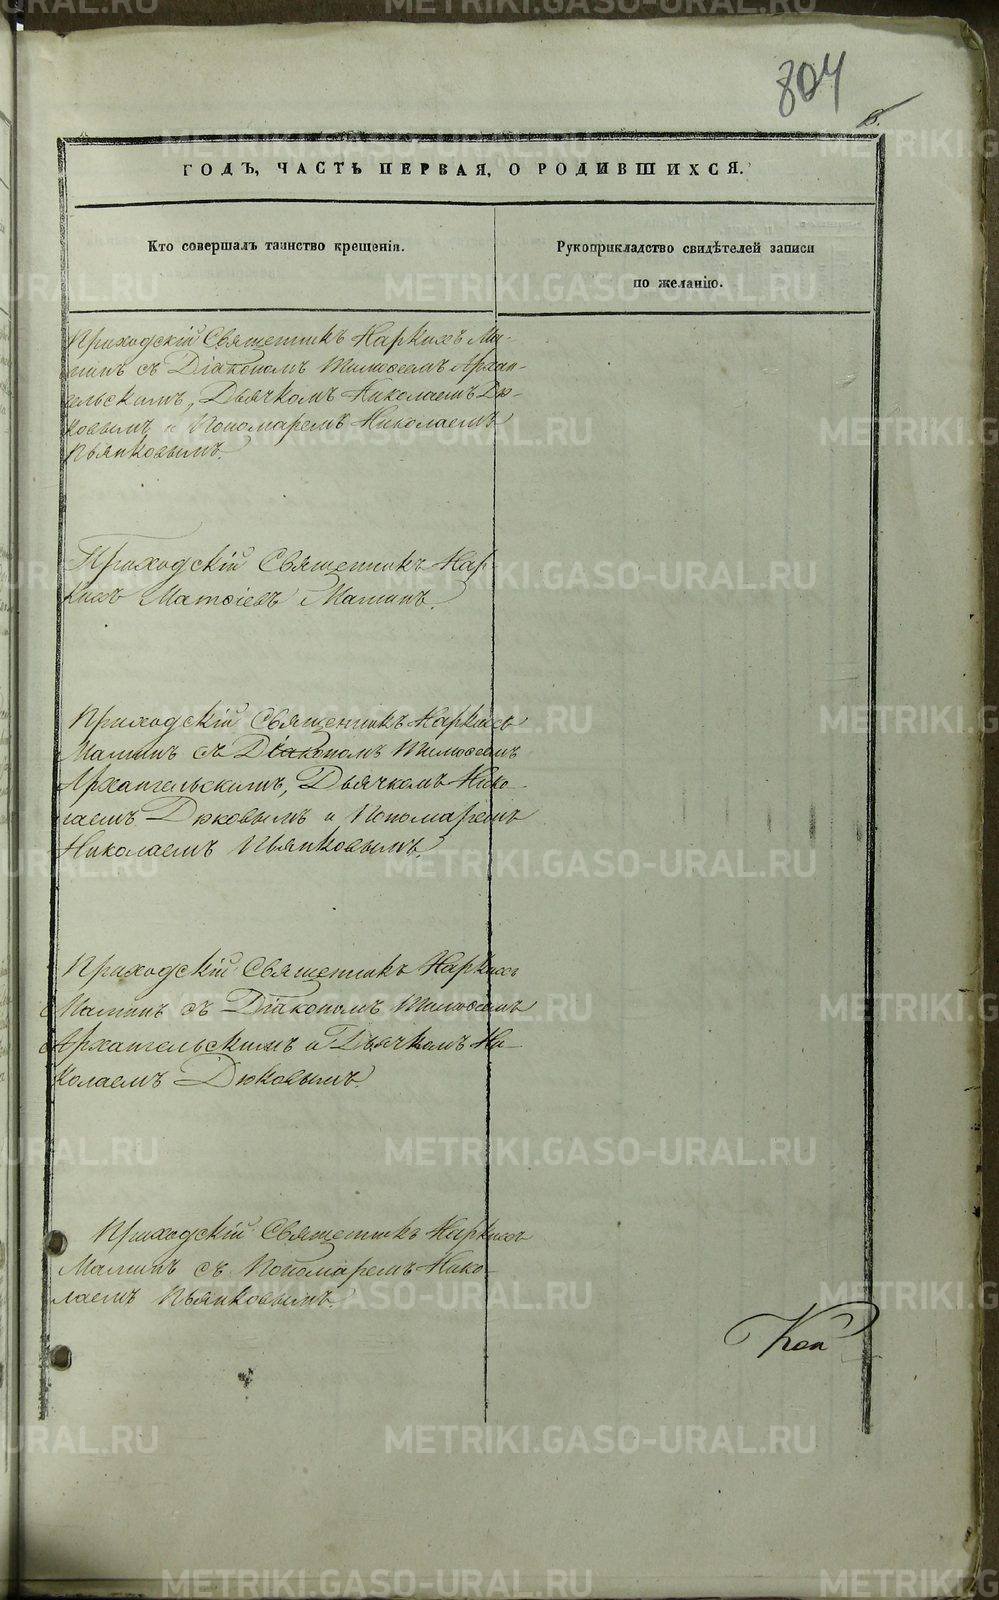 804
ГОДЪ, ЧАСТЬ ПЕРВАЯ, О РОДИВШИХСЯ.
Кто совершалъ таинство крещенія.
Рукоприкладство свидѣтелей записи
по желанію.
Приходскій Священникъ Наркисъ Ма-
минъ съ Діакономъ Тимоѳеемъ Архан-
гельскимъ, Дьячкомъ Николаемъ Дю-
ковымъ и Пономаремъ Николаемъ
Пьянковымъ.
Приходскій Священникъ Нар-
кисъ Матѳіевъ Маминъ.
Приходскій Священникъ Наркисъ
Маминъ съ Діакономъ Тимоѳеемъ
Архангельскимъ, Дьячкомъ Нико-
лаемъ Дюковымъ и Пономаремъ
Николаемъ Пьянковымъ.
Приходскій Священникъ Наркисъ
Маминъ съ Діакономъ Тимоѳеемъ
Архангельскимъ и Дьячкомъ Ни-
колаемъ Дюковымъ.
Приходскій Священникъ Наркисъ
Маминъ съ Пономаремъ Нико-
лаемъ Пьянковымъ.
METRIKI.GASO-URAL.RU